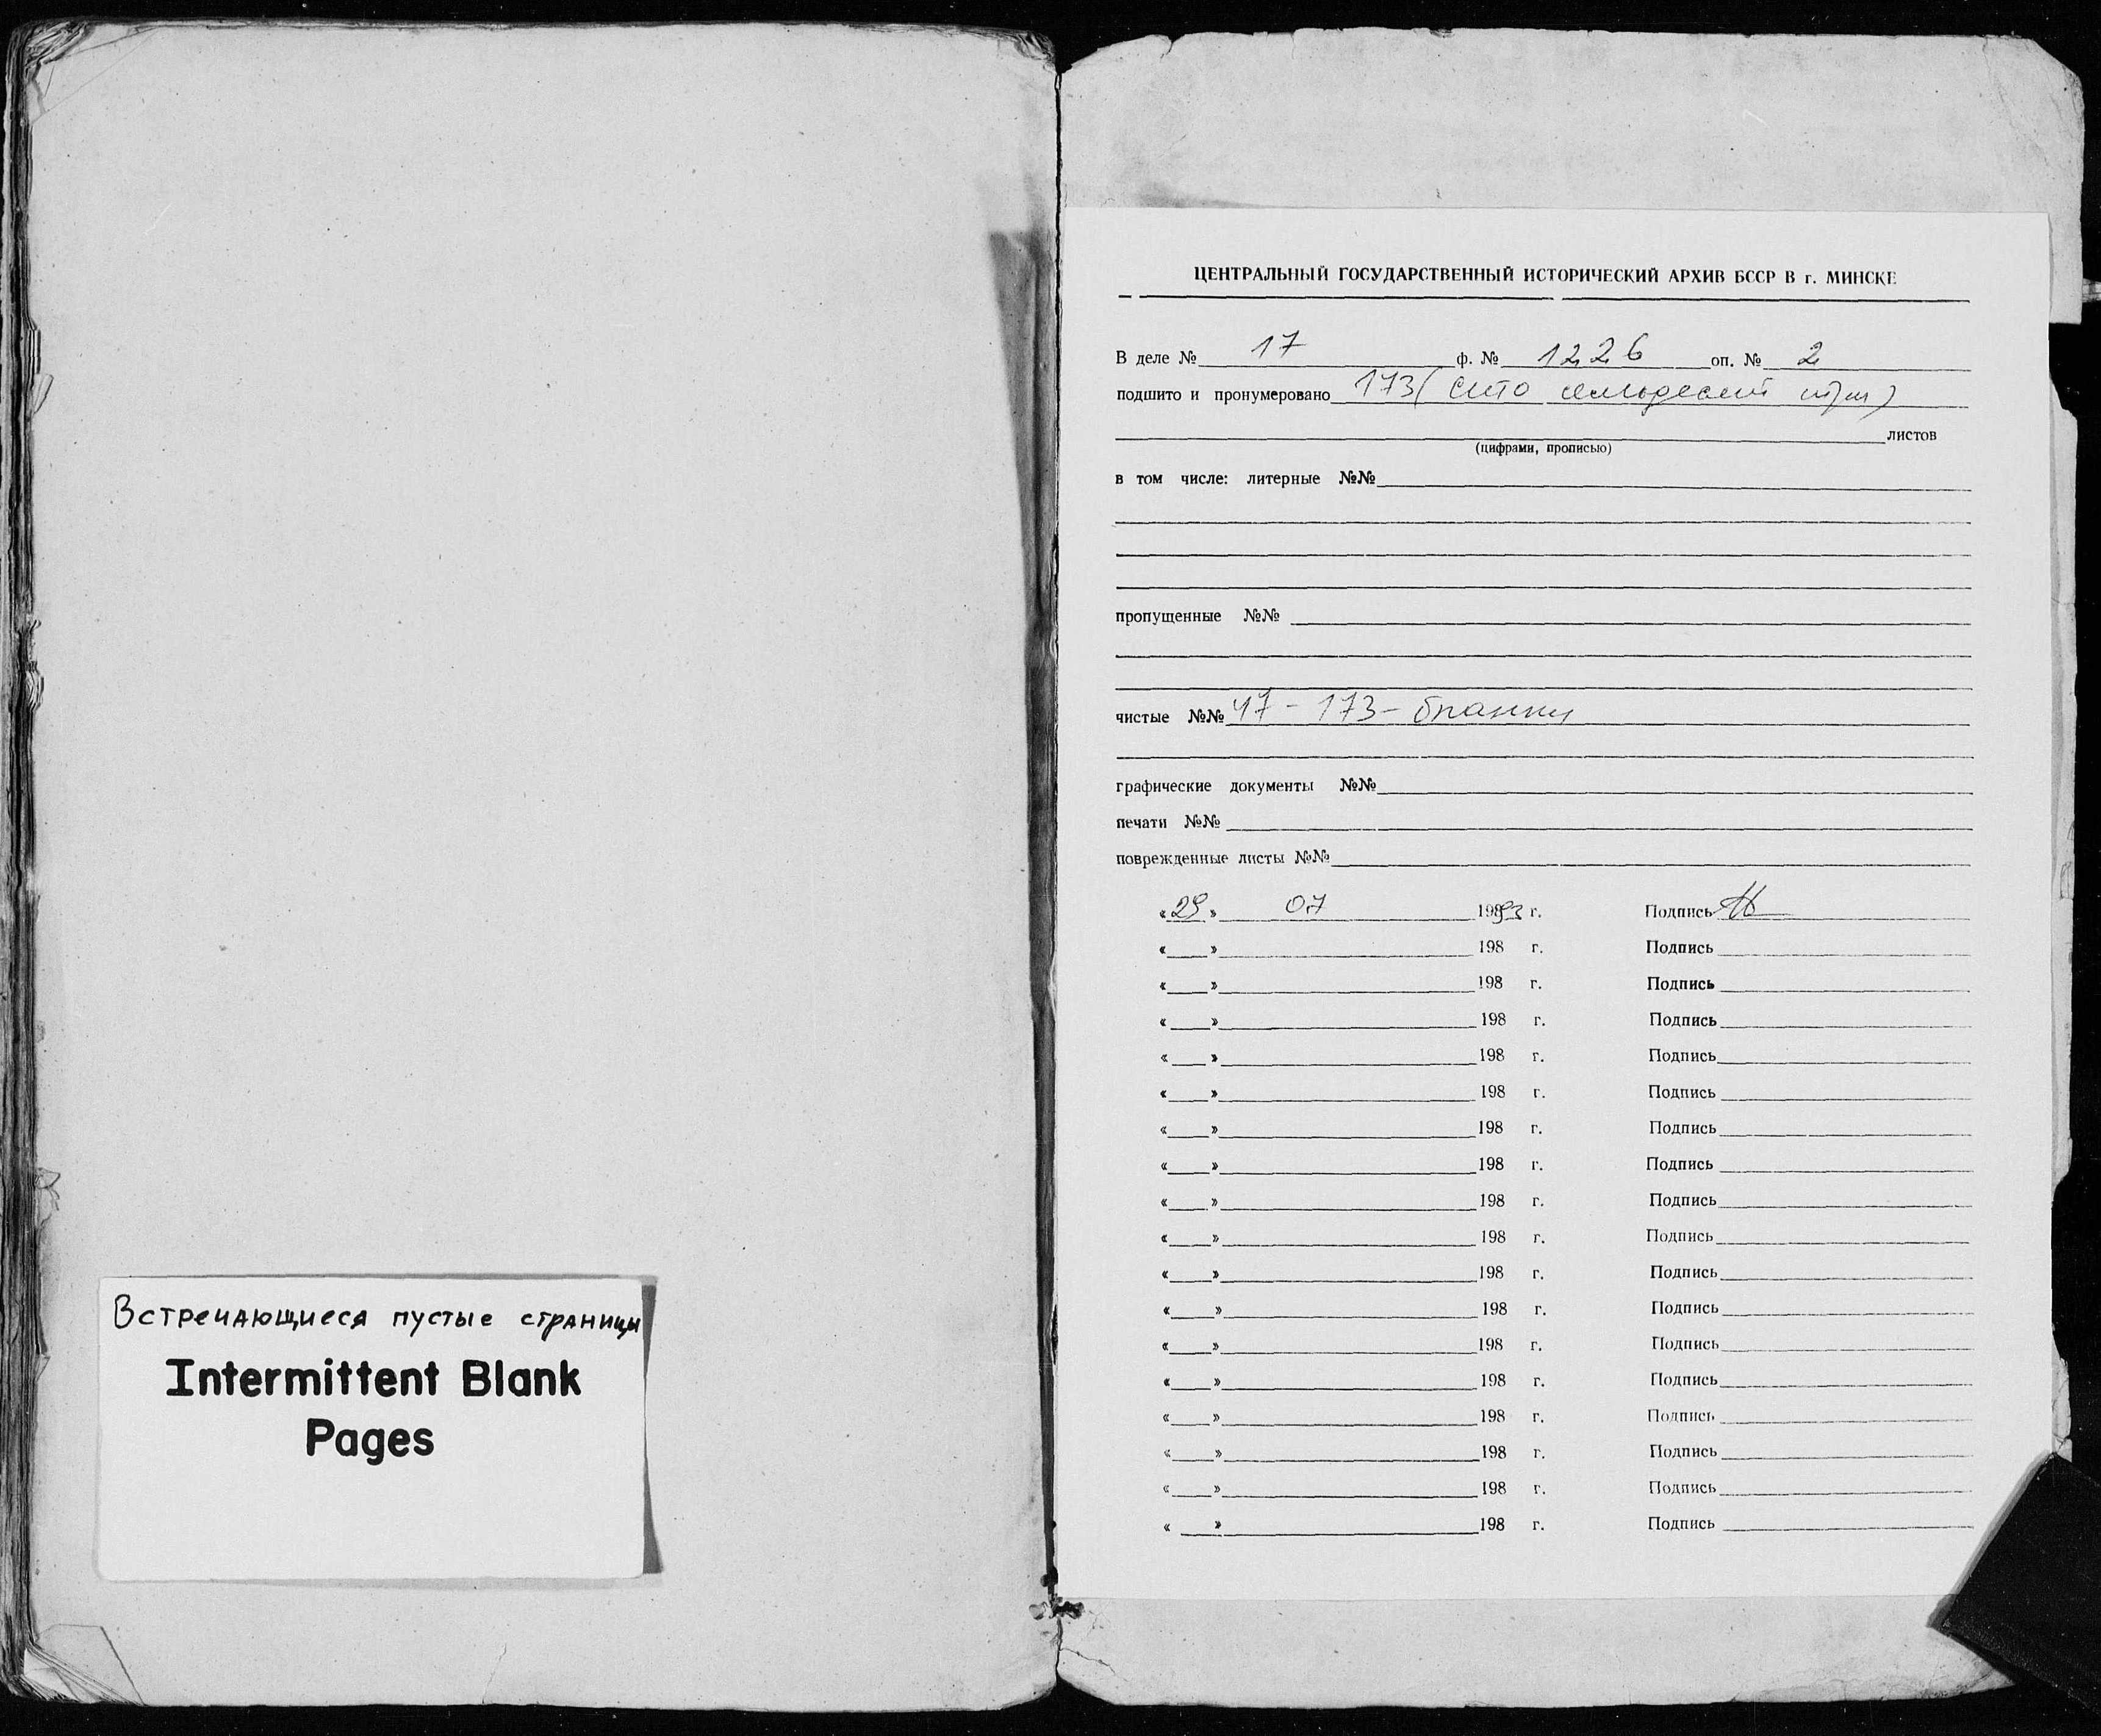 Встречающиеся пустые страницы
Intermittent Blank
Pages
ЦЕНТРАЛЬНЫЙ ГОСУДАРСТВЕННЫЙ ИСТОРИЧЕСКИЙ АРХИВ БССР В г. МИНСКЕ
В деле № 17 ф. № 1226 оп. № 2
подшито и пронумеровано 173 (сто семьдесят три)
листов
(цифрами, прописью)
в том числе: литерные №№
пропущенные №№
чистые №№ 47 - 173 - бланки
графические документы №№
печати №№
поврежденные листы №№
« 29 » 07 1993 г. Подпись
« » 198 г. Подпись
« » 198 г. Подпись
« » 198 г. Подпись
« » 198 г. Подпись
« » 198 г. Подпись
« » 198 г. Подпись
« » 198 г. Подпись
« » 198 г. Подпись
« » 198 г. Подпись
« » 198 г. Подпись
« » 198 г. Подпись
« » 198 г. Подпись
« » 198 г. Подпись
« » 198 г. Подпись
« » 198 г. Подпись
« » 198 г. Подпись
« » 198 г. Подпись